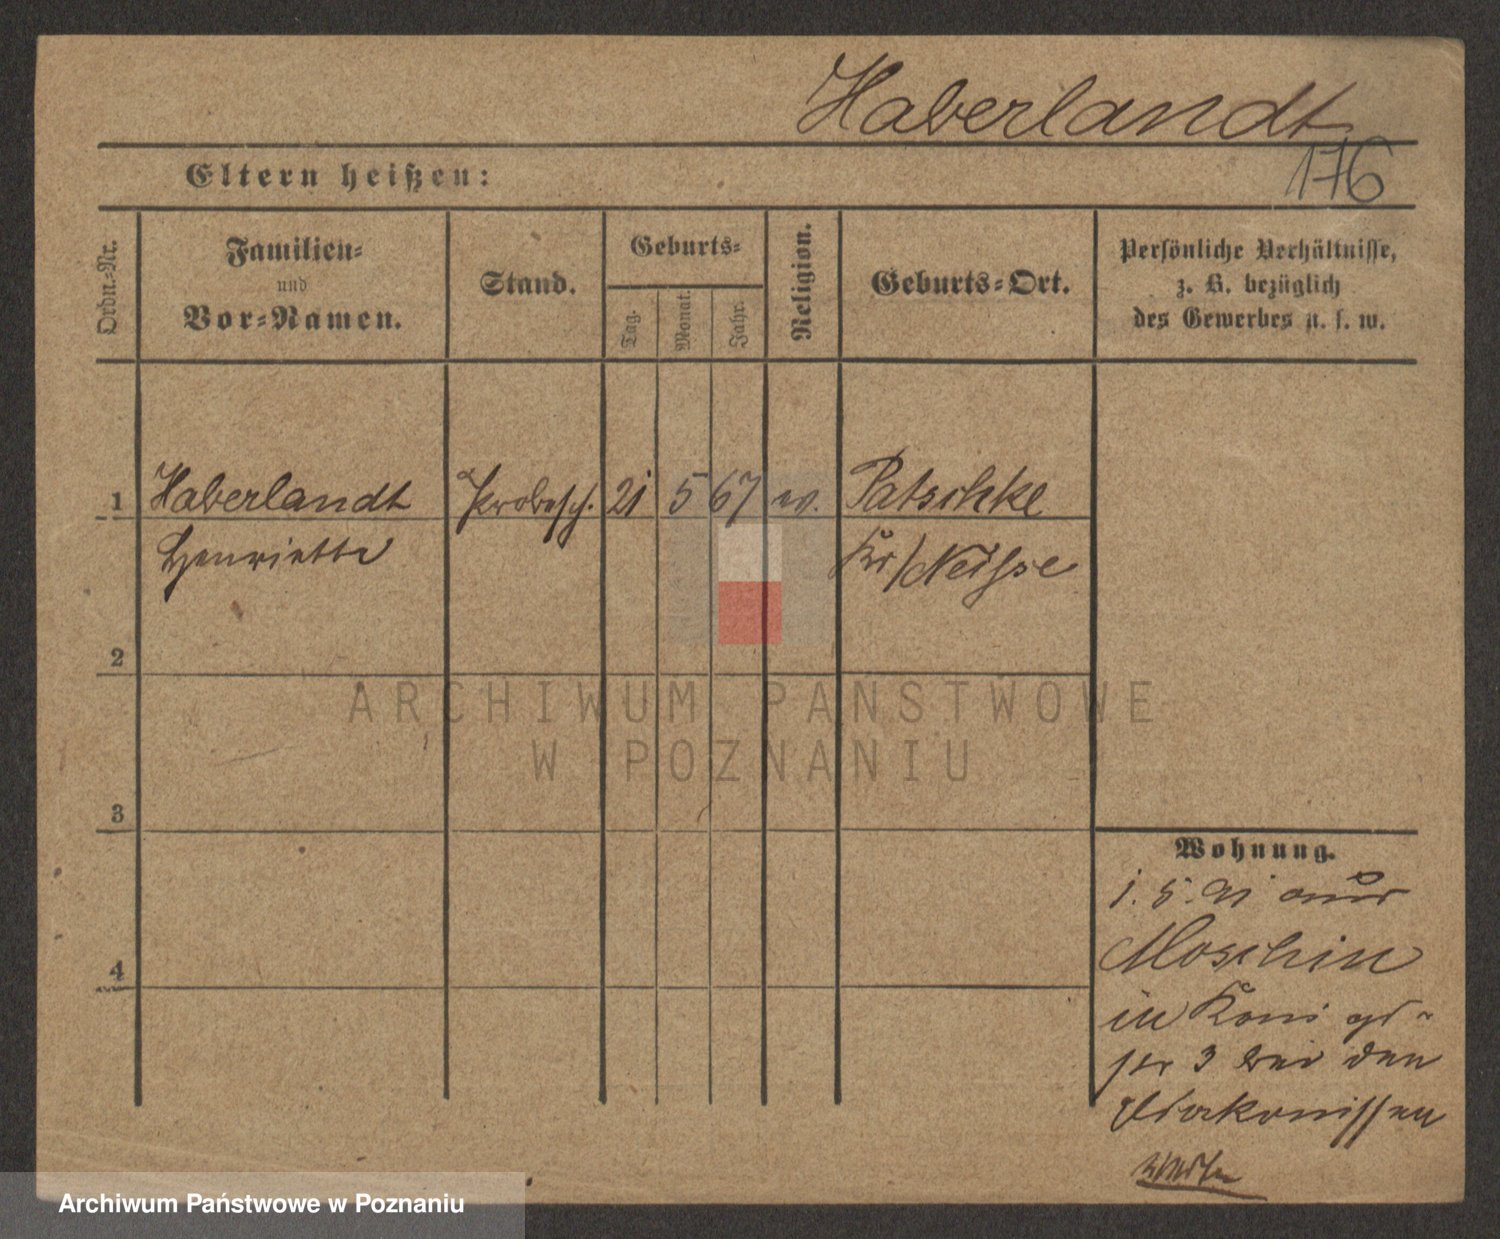 Haberlandt
176
Eltern heißen:
Ordn.-Nr.
Familien-
und
Vor-Namen.
Stand.
Geburts-
Tag.
Monat.
Jahr.
Religion.
Geburts-Ort.
Persönliche Verhältnisse,
z. B. bezüglich
des Gewerbes u. s. w.
1 Haberlandt Probesch. 21 5 67 ev. Patschke
Henriette Kr/Neisse
2
3
4
Wohnung.
1. 5. 91 aus
Moschin
in Königs-
str 3 bei den
Diakonissen
ARCHIWUM PAŃSTWOWE
W POZNANIU
Archiwum Państwowe w Poznaniu